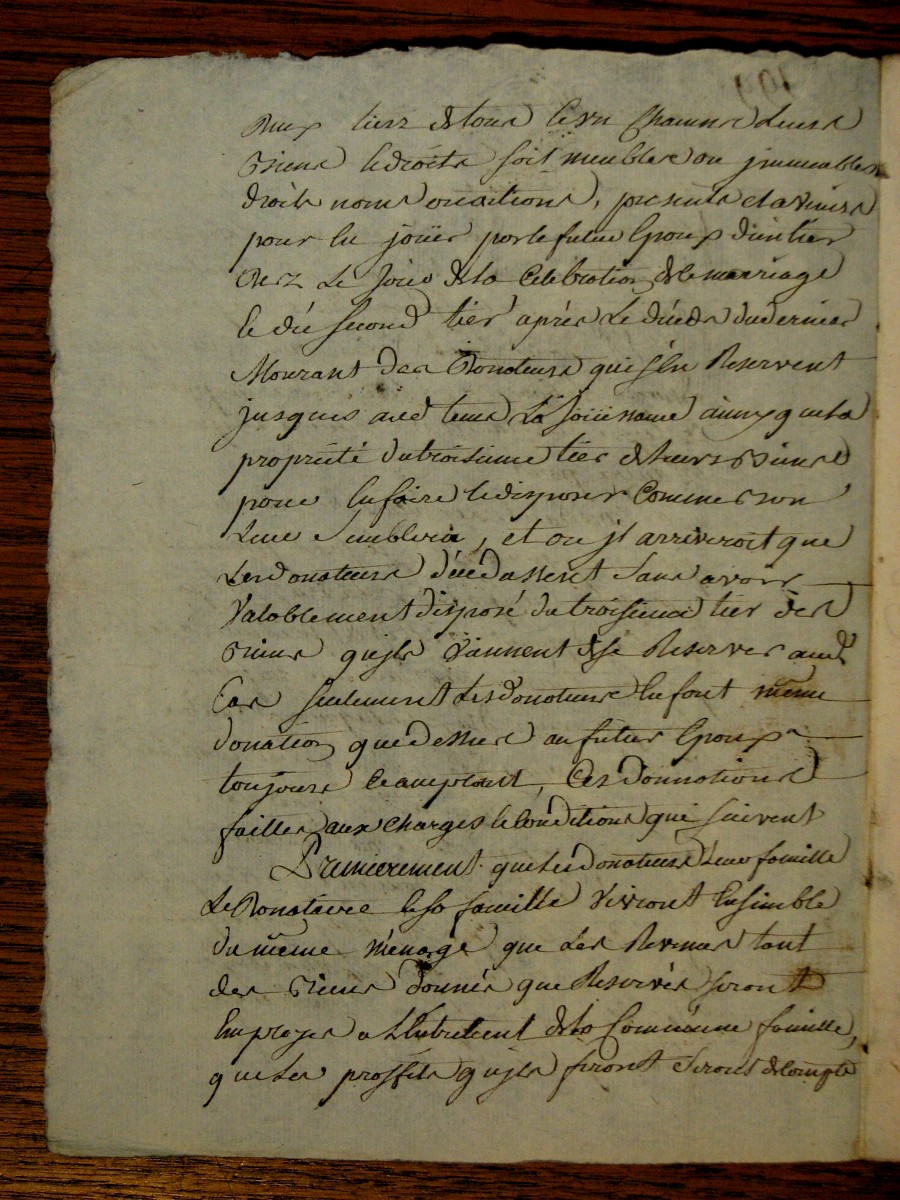 Deux tiers de tous et un Chacuns Leurs
Biens et droits soit meubles ou jmmeubles
droits noms ou actions, presents et a venirs
pour En joüir par le futur Epoux d'un tier
Chez Le Jour de la Celebration de le marriage
et du second tier après Le décèds du dernier
Mourant des Donateurs qui s'En Reservent
jusques aud tems La Joüissance ainsy que la
propriété du troisieme tier de leurs Biens
pour En faire et disposer Comme bon
Leur Semblera, et ou jl arriveroit que
Les donateurs décédassent Sans avoir
Valablement disposé du troisieme tier des
Biens qu'jls Viennent de se Reserver aud
Cas seulement Les donateurs En font même
donation que dessus au futur Epoux
toujours acceptant, Ces donnations
faittes aux charges et Conditions qui suivent
Premierement que Les donateurs Leur famille
Le Donataire et sa famille Vivront Ensemble
du même ménage que Les Revenus tant
des Biens donnés que Reservés seront
Employes a L'Entretient de la Commune famille,
que Les proffits qu'jls feront Seront de Compte